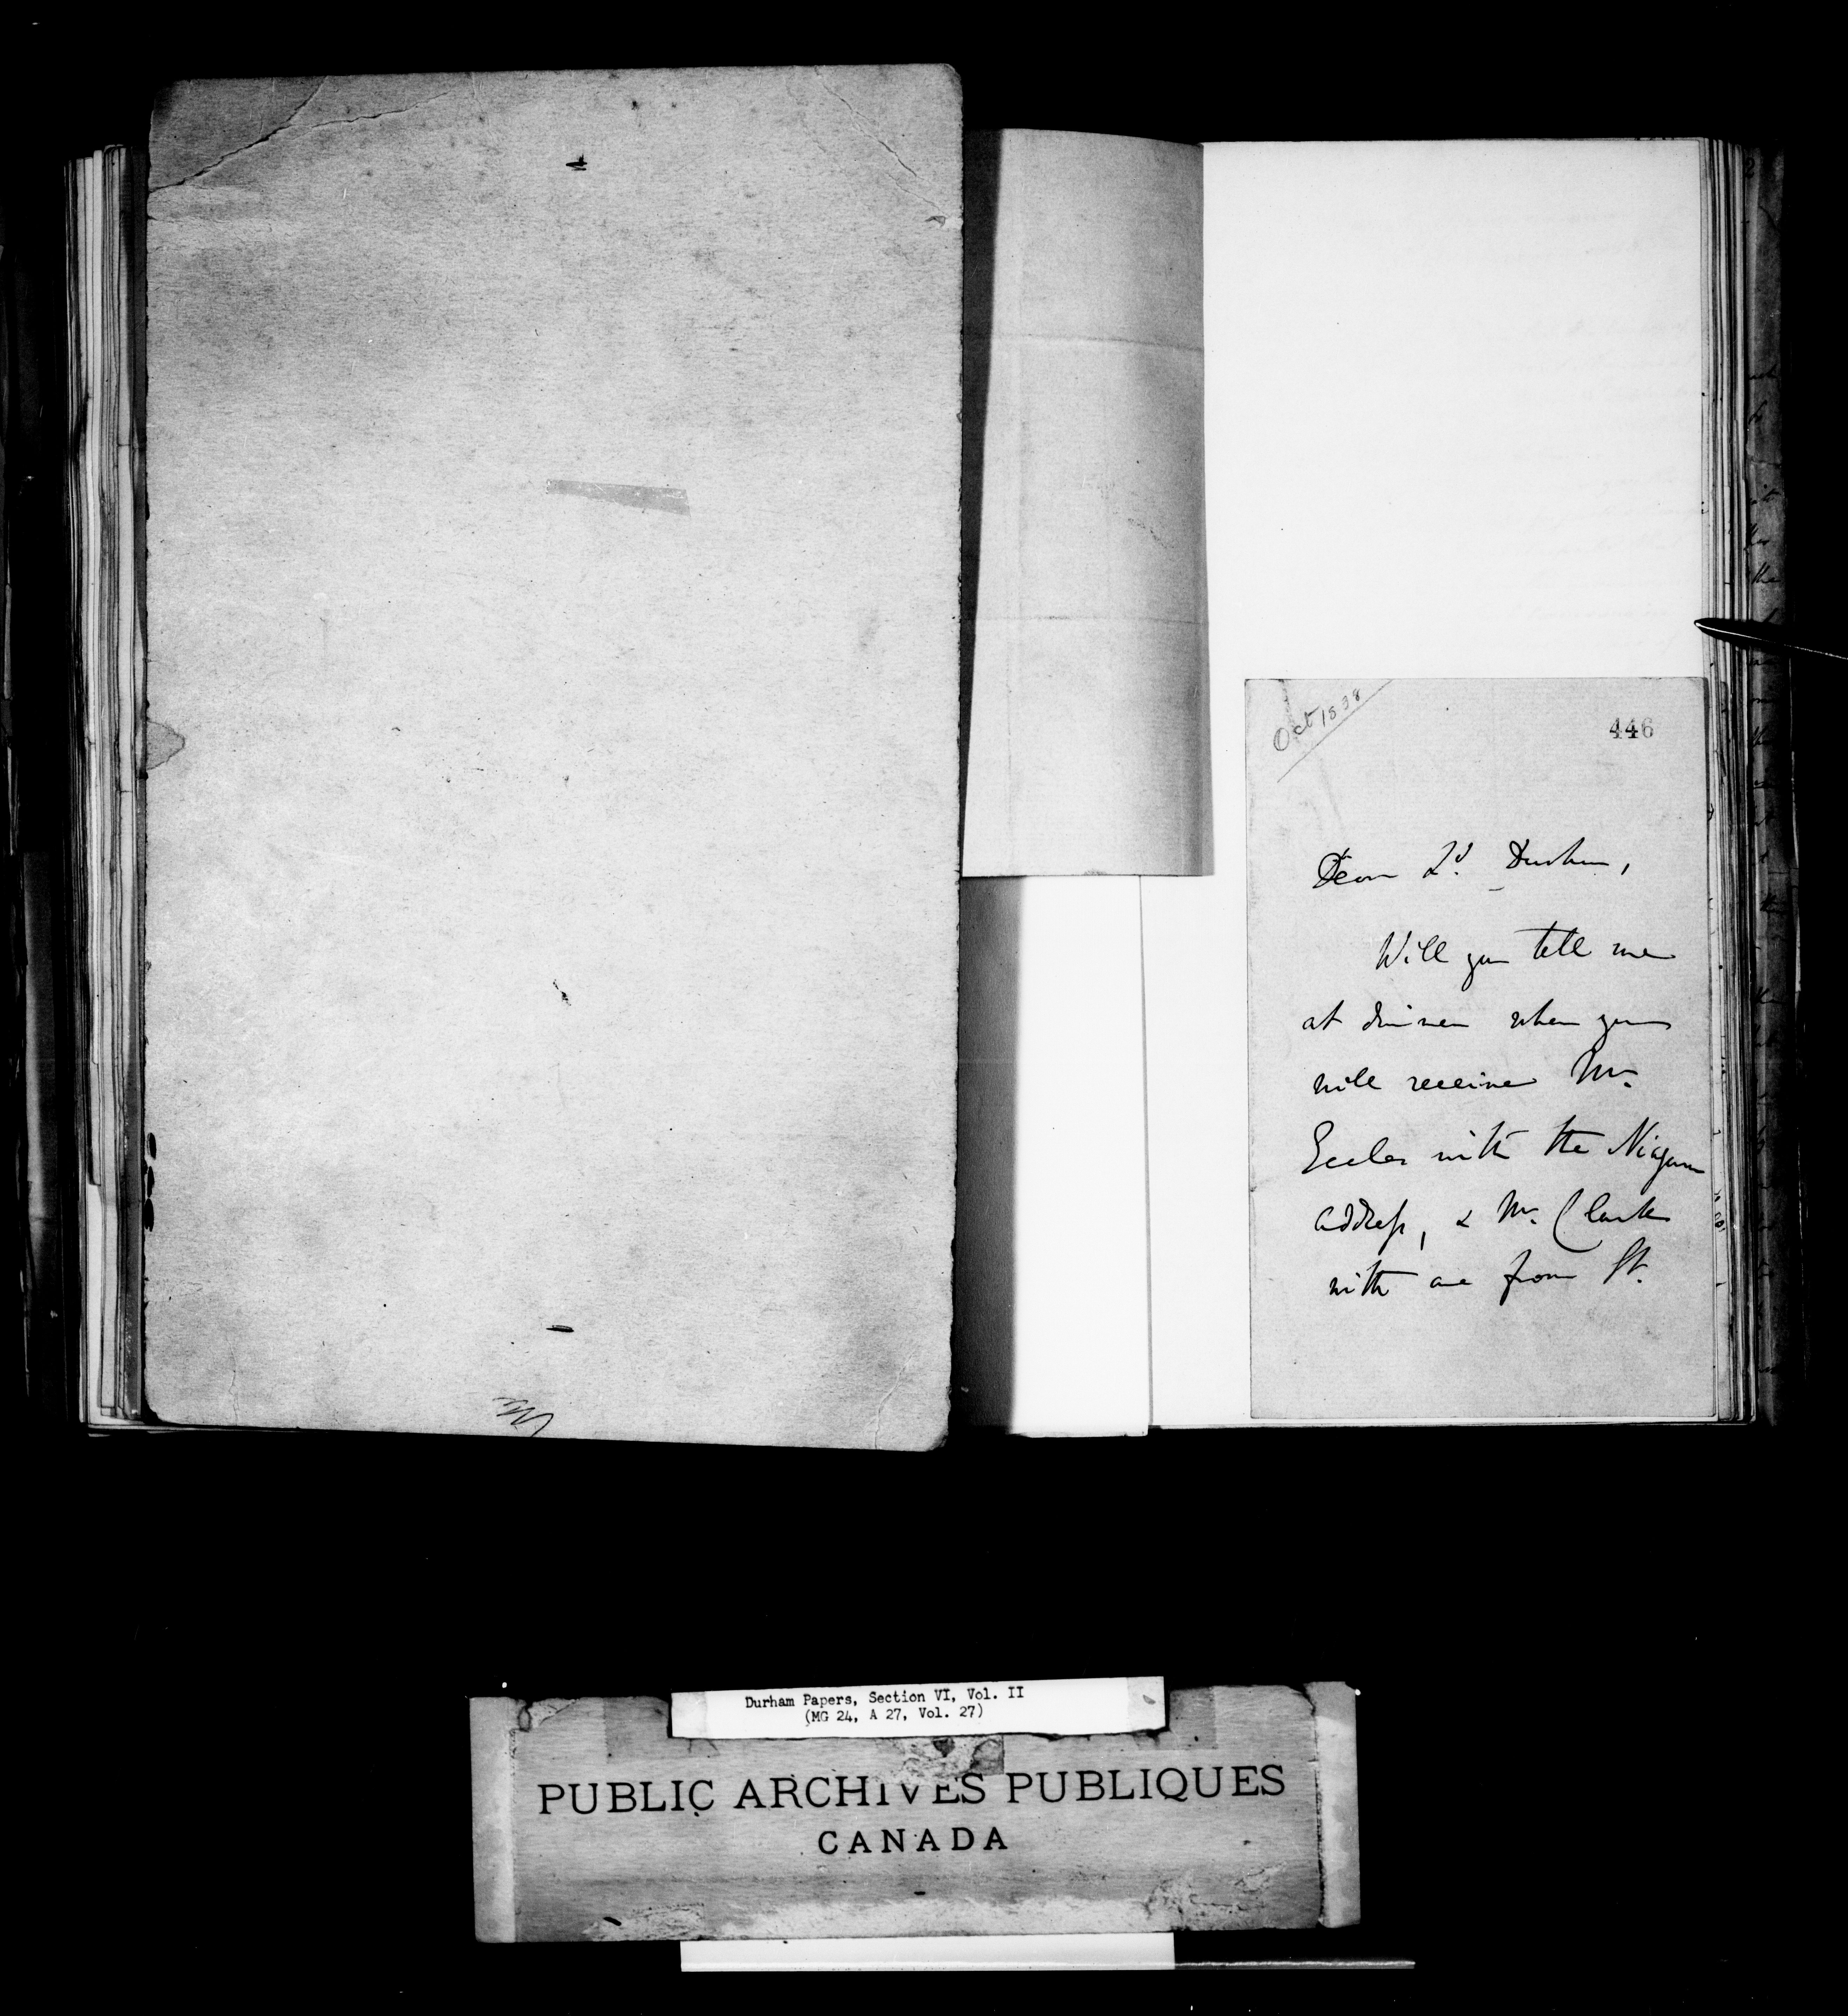 Oct 1838
446
Dear Ld. Durham,
Will you tell me
at dinner when you
will receive Mr.
Eccles with the Niagara
address, & Mr. Clark
with one from St.
Durham Papers, Section VI, Vol. II
(MG 24, A 27, Vol. 27)
PUBLIC ARCHIVES PUBLIQUES
CANADA